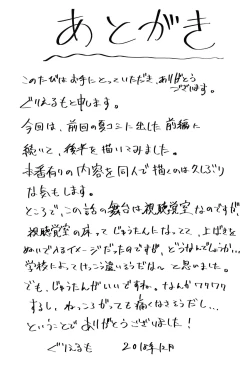 あとがき
このたびはお手にとっていただき、ありがとう
ございます。
ぐりえるもと申します。
今回は、前回の夏コミに出した前編に
続いて、後半を描いてみました。
本番有りの内容を同人で描くのは久しぶり
な気もします。
ところで、この話の舞台は視聴覚室なのですが、
視聴覚室の床ってじゅうたんになってて、上ばきを
ぬいで入るイメージだったのですが、どうなんでしょうか…
学校によってけっこう違いそうだな〜と思いました。
でも、じゅうたんがいいですね。なんかワクワク
するし、ねっころがっても痛くなさそうだし…
ということでありがとうございました!
ぐりえるも 2018年12月